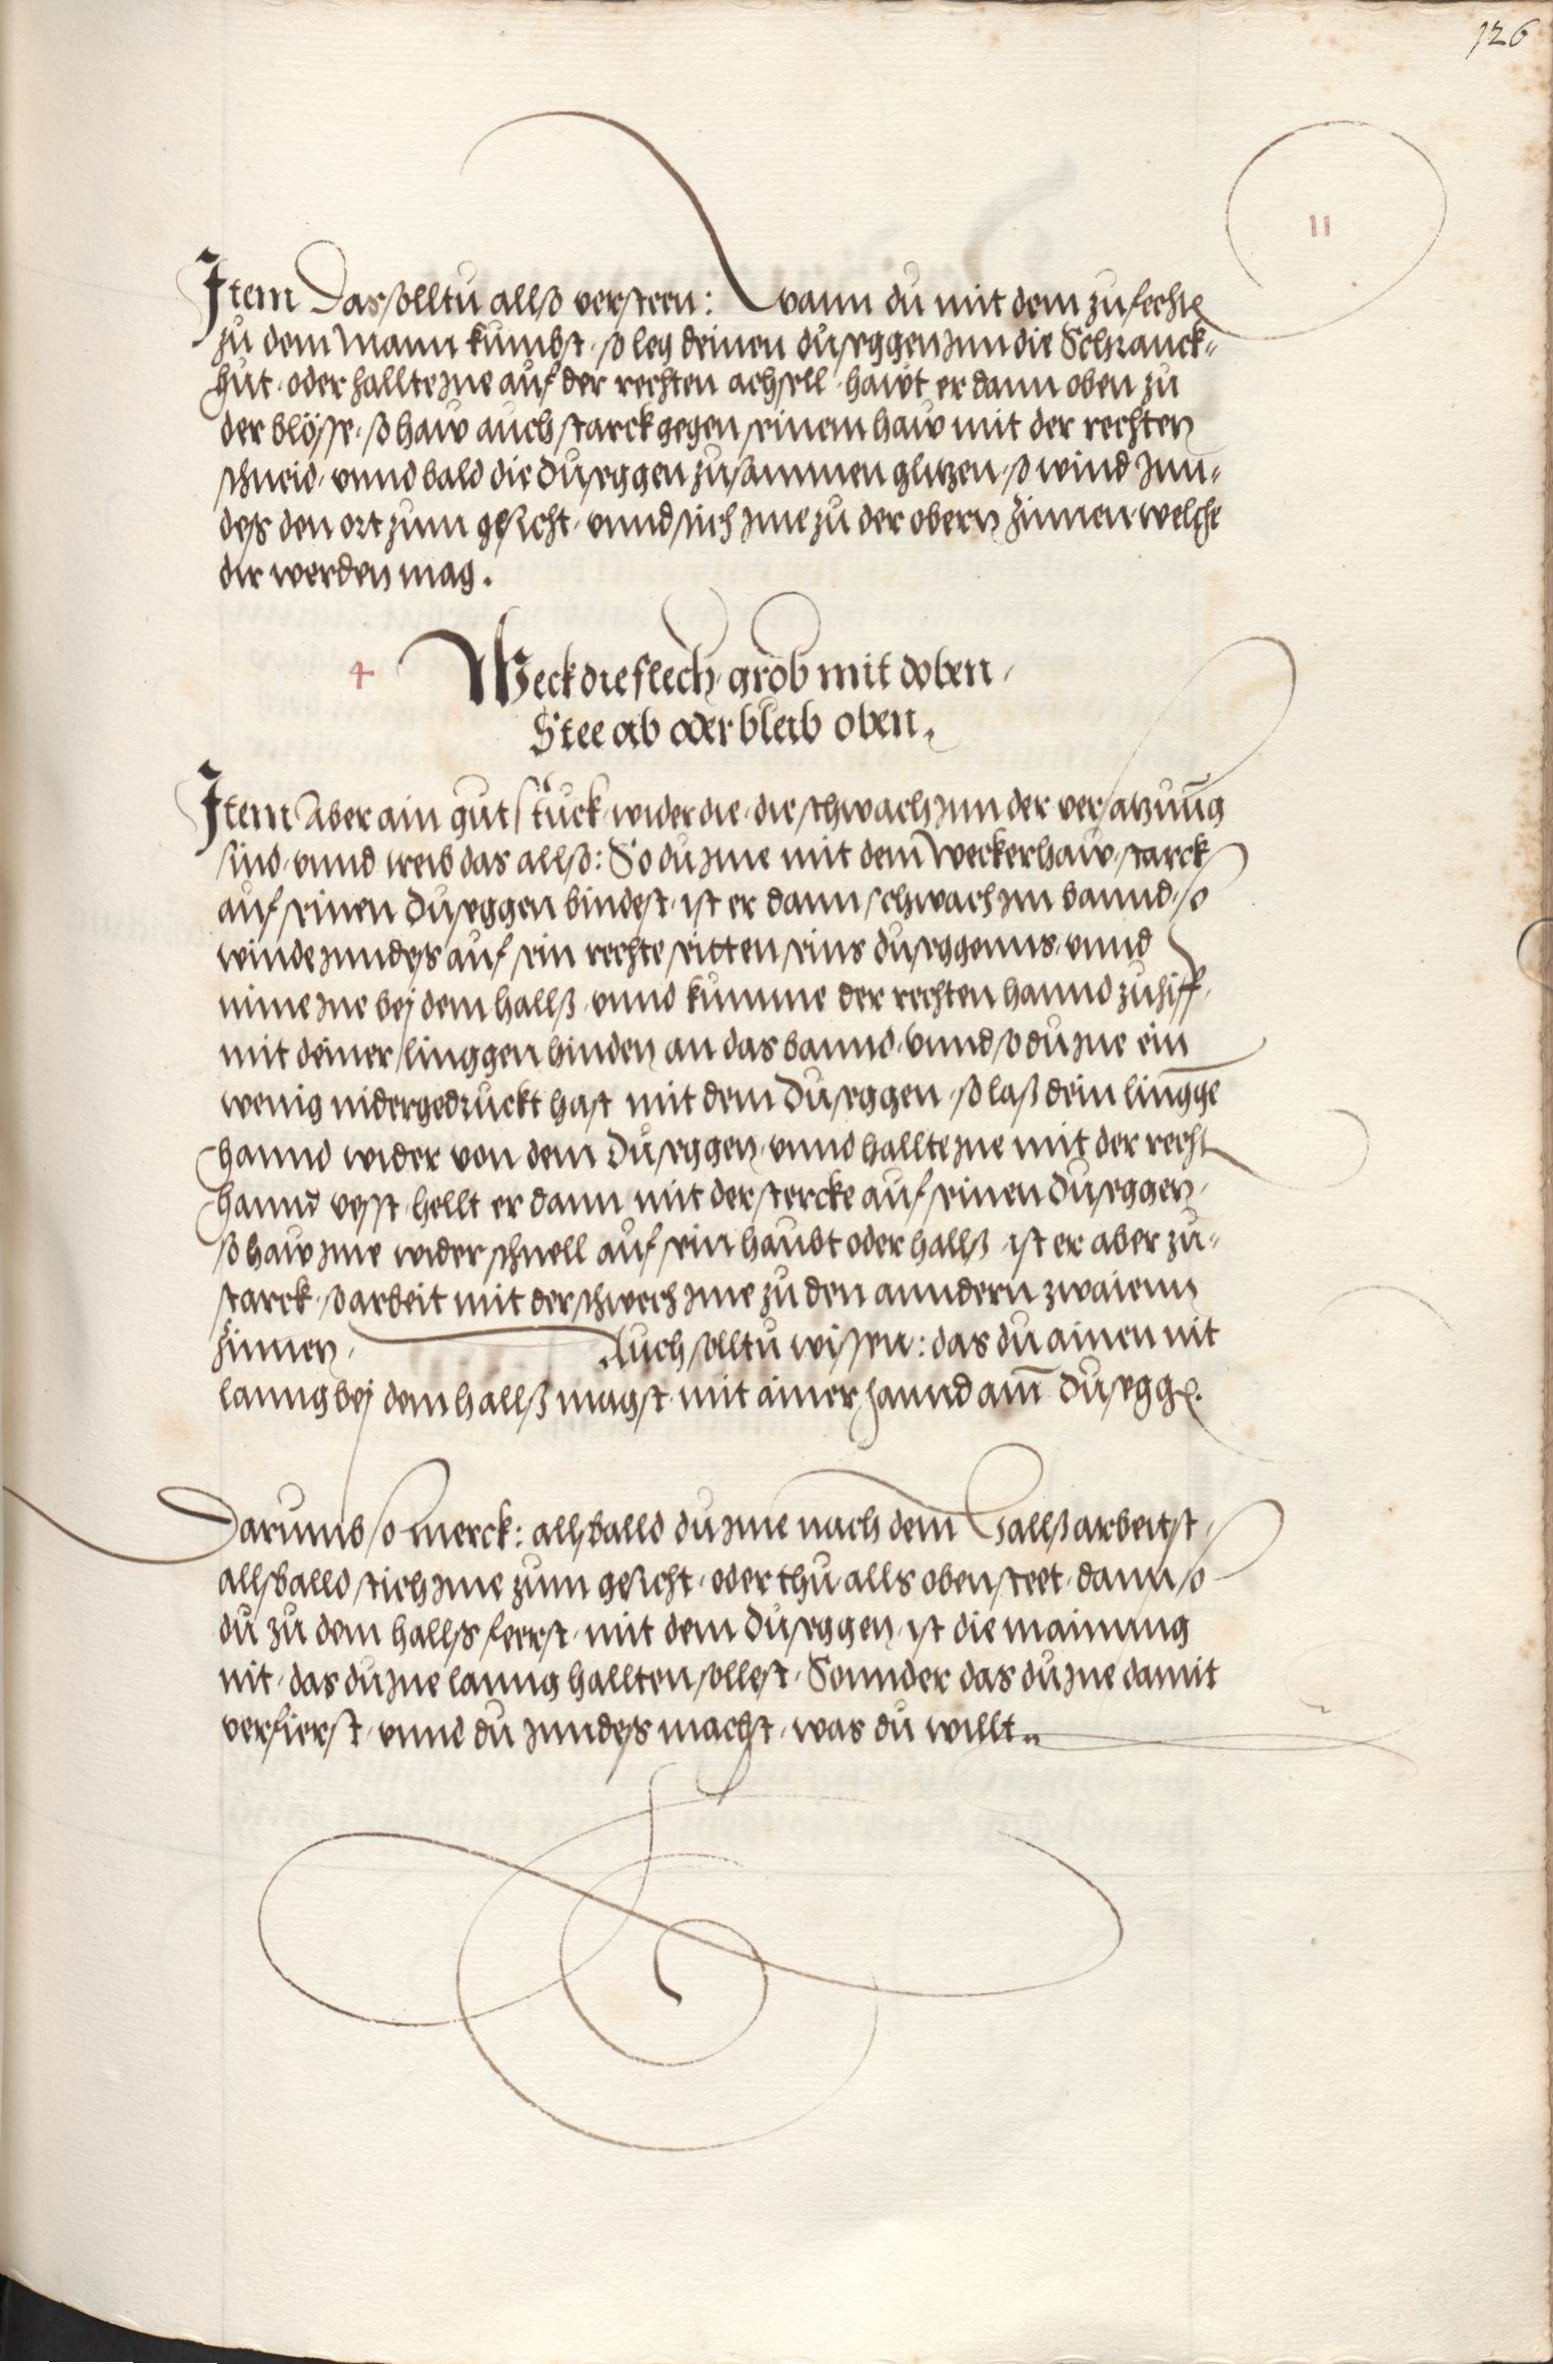 126
11
Item Das solltu allso versteen: wann du mit dem zufechten
zu dem Mann kumbst, so leg deinen dusegggen jnn die Schranck=
hut, oder hallte jne auf der rechten achsell, hawt er dann oben zu
der blösse, so haw auch starck gegen seinem haw mit der rechten
schneid, vnnd bald die Duseggen zusammen glitzen, so wind Jnn=
des den ort zum gesicht, vnnd stich jme zu der obern Zinnen welche
dir werden mag.
4 Weck die flech, grob mit doben,
Stee ab oder bleib oben.
Item Aber ain gut stuck, wider die, die schwach jnn der versatzung
sind, vnnd treib das allso: So du jme mit dem Weckerhaw, starck
auf seinen Duseggen bindest, ist er dann schwach jm bannd, so
winde jnndes auf sein rechte seitten seins duseggenns, vnnd
nime jne bej dem hallß, vnnd kumme der rechten hannd zuhilff,
mit deiner linggen hinden an das bannd, vnnd so du jne ein
wenig nidergedruckt hast mit dem Duseggen, so laß dein lingge
hannd wider von dem Duseggen, vnnd hallte jne mit der recht
hannd vesst, hellt er dann mit der stercke auf seinen Duseggen,
so haw jme wider schnell auf sein haubt oder hallß, ist er aber zu=
starck, so arbeit mit der schwech jme zu den anndern zwaienn
Zinnen, Auch solltu wissen: das du ainen nit
lanng bej dem hallß magst, mit ainer hannd am Duseggen.
Darumb so merck: allsballd du jme nach dem Hallß arbeitst,
allsballd stich jme zum gesicht, oder thu alls oben steet, dann so
du zu dem hallß feerst, mit dem Duseggen, ist die mainung
nit, das du jne lanng hallten sollest, Sonnder das du jne damit
verfierst, vnnd du jnndes machst, was du willt.